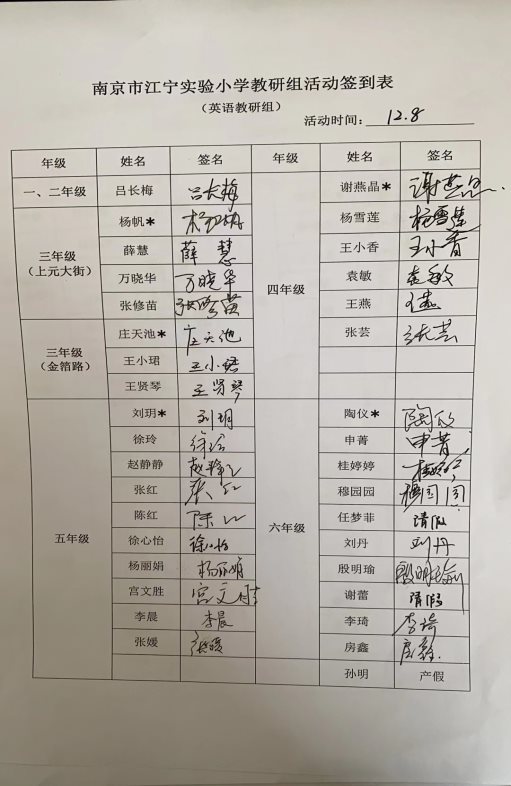 南京市江宁实验小学教研组活动签到表
（英语教研组）
活动时间： 12.8
年级 姓名 签名 年级 姓名 签名
一、二年级 吕长梅 吕长梅
三年级
（上元大街）
杨帆* 杨帆
薛慧 薛慧
万晓华 万晓华
张修苗 张修苗
三年级
（金箔路）
庄天池* 庄天池
王小珺 王小珺
王贤琴 王贤琴
五年级
刘玥* 刘玥
徐玲 徐玲
赵静静 赵静静
张红 张红
陈红 陈红
徐心怡 徐心怡
杨丽娟 杨丽娟
宫文胜 宫文胜
李晨 李晨
张媛 张媛
四年级
谢燕晶* 谢燕晶
杨雪莲 杨雪莲
王小香 王小香
袁敏 袁敏
王燕 王燕
张芸 张芸
六年级
陶仪* 陶仪
申菁 申菁
桂婷婷 桂婷婷
穆园园 穆园园
任梦菲 请假
刘丹 刘丹
殷明瑜 殷明瑜
谢蕾 请假
李琦 李琦
房鑫 房鑫
孙明 产假